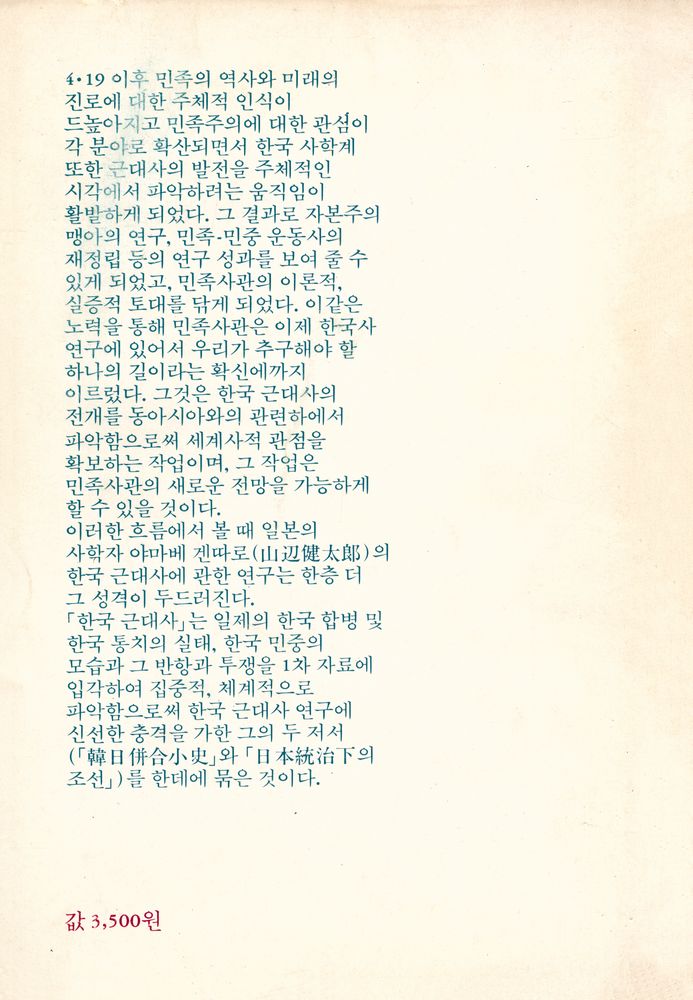 4·19 이후 민족의 역사와 미래의
진로에 대한 주체적 인식이
드높아지고 민족주의에 대한 관심이
각 분야로 확산되면서 한국 사학계
또한 근대사의 발전을 주체적인
시각에서 파악하려는 움직임이
활발하게 되었다. 그 결과로 자본주의
맹아의 연구, 민족-민중 운동사의
재정립 등의 연구 성과를 보여 줄 수
있게 되었고, 민족사관의 이론적,
실증적 토대를 닦게 되었다. 이같은
노력을 통해 민족사관은 이제 한국사
연구에 있어서 우리가 추구해야 할
하나의 길이라는 확신에까지
이르렀다. 그것은 한국 근대사의
전개를 동아시아와의 관련하에서
파악함으로써 세계사적 관점을
확보하는 작업이며, 그 작업은
민족사관의 새로운 전망을 가능하게
할 수 있을 것이다.
이러한 흐름에서 볼 때 일본의
사학자 야마베 겐따로(山辺健太郎)의
한국 근대사에 관한 연구는 한층 더
그 성격이 두드러진다.
「한국 근대사」는 일제의 한국 합병 및
한국 통치의 실태, 한국 민중의
모습과 그 반항과 투쟁을 1차 자료에
입각하여 집중적, 체계적으로
파악함으로써 한국 근대사 연구에
신선한 충격을 가한 그의 두 저서
(「韓日併合小史」와 「日本統治下의
조선」)를 한데에 묶은 것이다.
값 3,500원